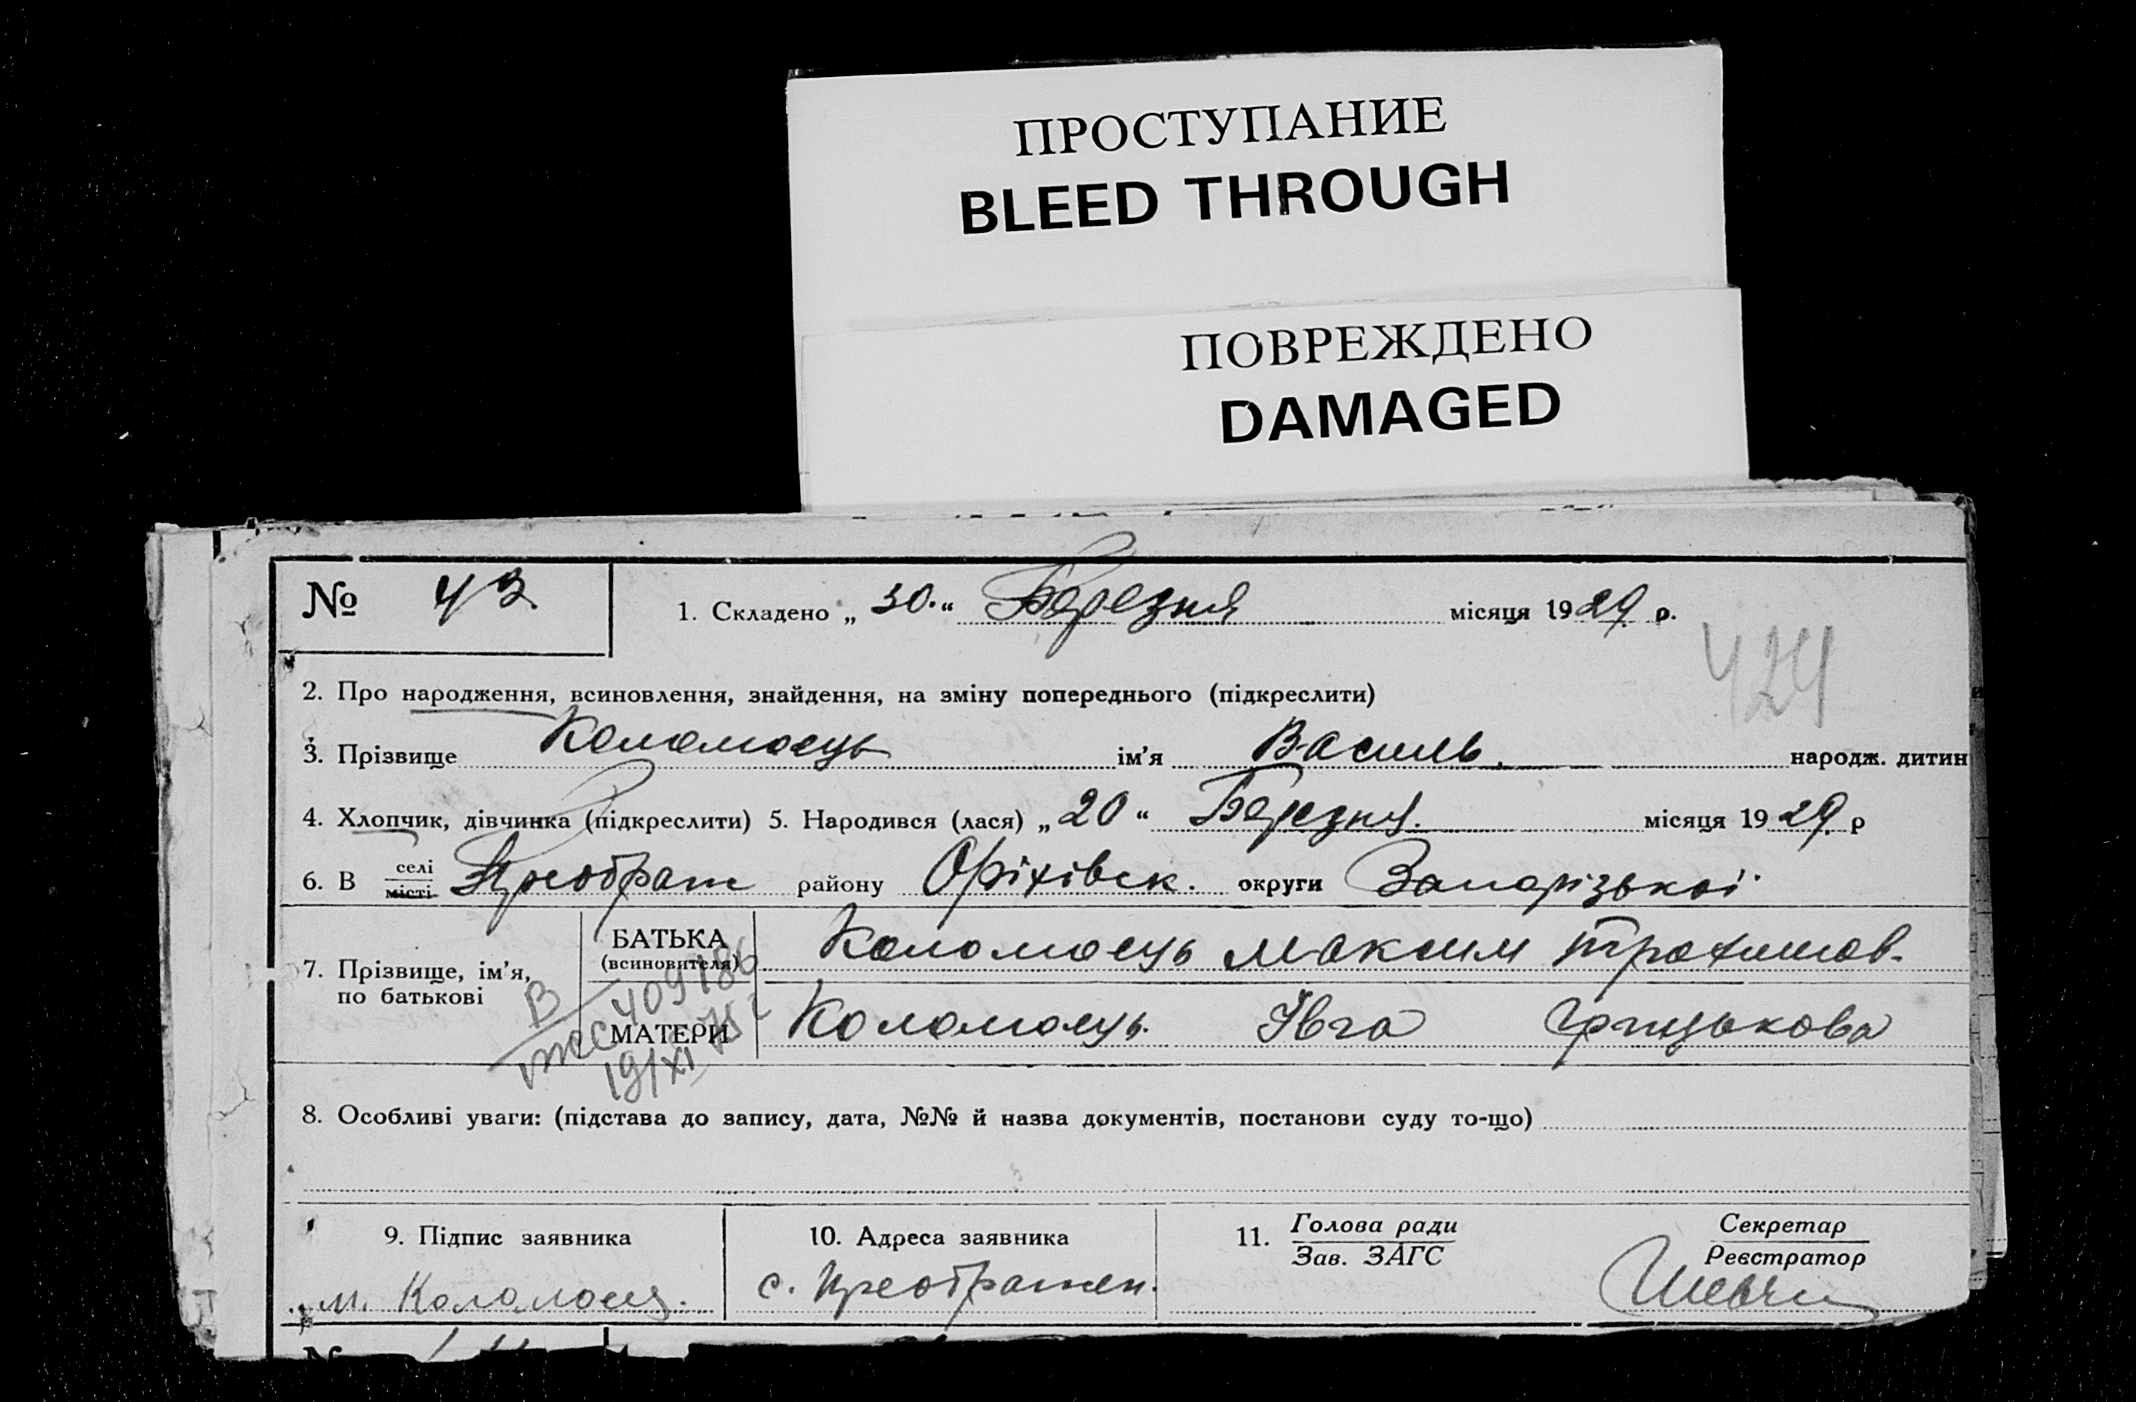 ПРОСТУПАНИЕ
BLEED THROUGH
ПОВРЕЖДЕНО
DAMAGED
№ 43 1. Складено „ 30. “ Березня місяця 1929 р.
424
2. Про народження, всиновлення, знайдення, на зміну попереднього (підкреслити)
3. Прізвище Коломоєць ім’я Василь. народж. дитин
4. Хлопчик, дівчинка (підкреслити) 5. Народився (лася) „ 20 “ Березня. місяця 1929. р
6. В селі / місті Преображ району Оріхівськ. округи Запорізької
7. Прізвище, ім’я, по батькові
БАТЬКА (всиновителя) Коломоєць Максим Трохимов.
МАТЕРИ Коломоєць. Ївга Грицькова
В 409186
19/XI
8. Особливі уваги: (підстава до запису, дата, №№ й назва документів, постанови суду то-що)
9. Підпис заявника 10. Адреса заявника 11. Голова ради / Зав. ЗАГС Секретар / Реєстратор
м. Коломоєц. с. Преображен.
№